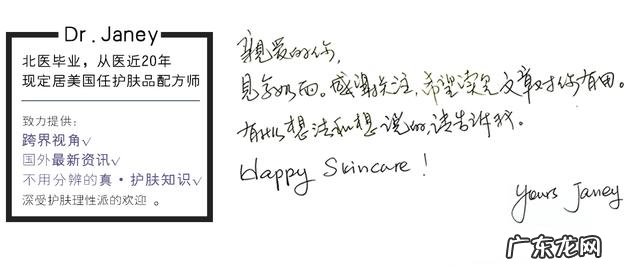 Dr. Janey
北医毕业，从医近20年
现定居美国任护肤品配方师
致力提供：
跨界视角√
国外最新资讯√
不用分辨的真·护肤知识√
深受护肤理性派的欢迎 。
親爱的你，
见字如面。感谢关注，希望读完文章对你有用。
有什么想法和想说的，请告诉我。
Happy Skincare !
yours Janey
广东龙网